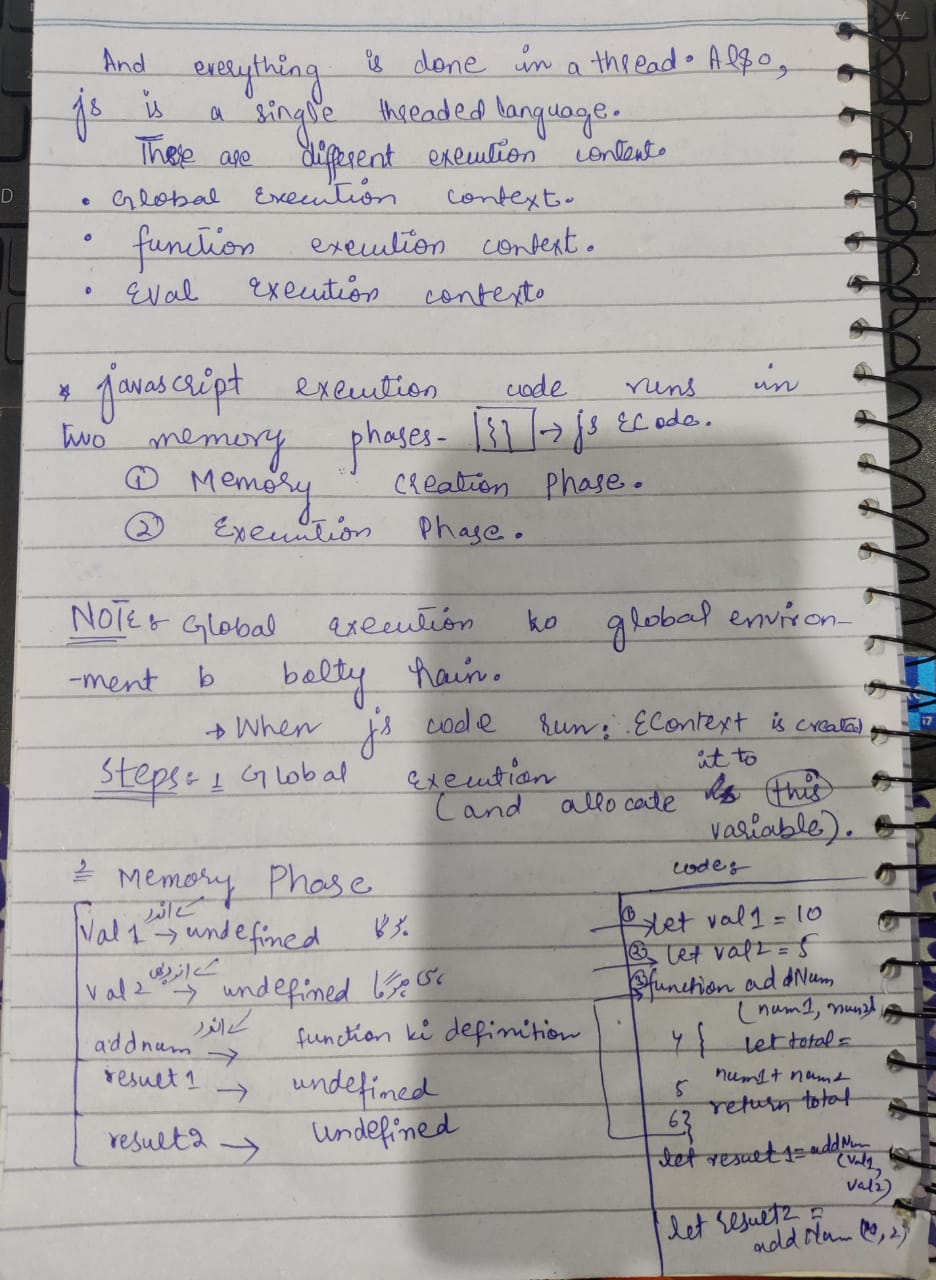 And everything is done in a thread. Also,
js is a single threaded language.
These are different execution content.
• Global Execution context.
• function execution context.
• Eval execution context.
* javascript execution code runs in
two memory phases- [{}] → js ECode.
① Memory Creation Phase.
② Execution Phase.
NOTE: Global execution ko global environ-
-ment b bolty hain.
→ When js code run: EContext is created
Steps: 1 Global Execution
(and allocate it to this
variable).
2 Memory Phase
Val 1 کے اندر → undefined ہوگا
val 2 → undefined
addnum کے اندر → function ki definition
result 1 → undefined
result 2 → Undefined
code:
① let val1 = 10
② let val2 = 5
③ function addNum
(num1, num2)
4 { let total =
num1 + num2
5 return total
6 }
let result 1 = addNum
(val1,
val2)
let result2 =
addNum (10, 2)